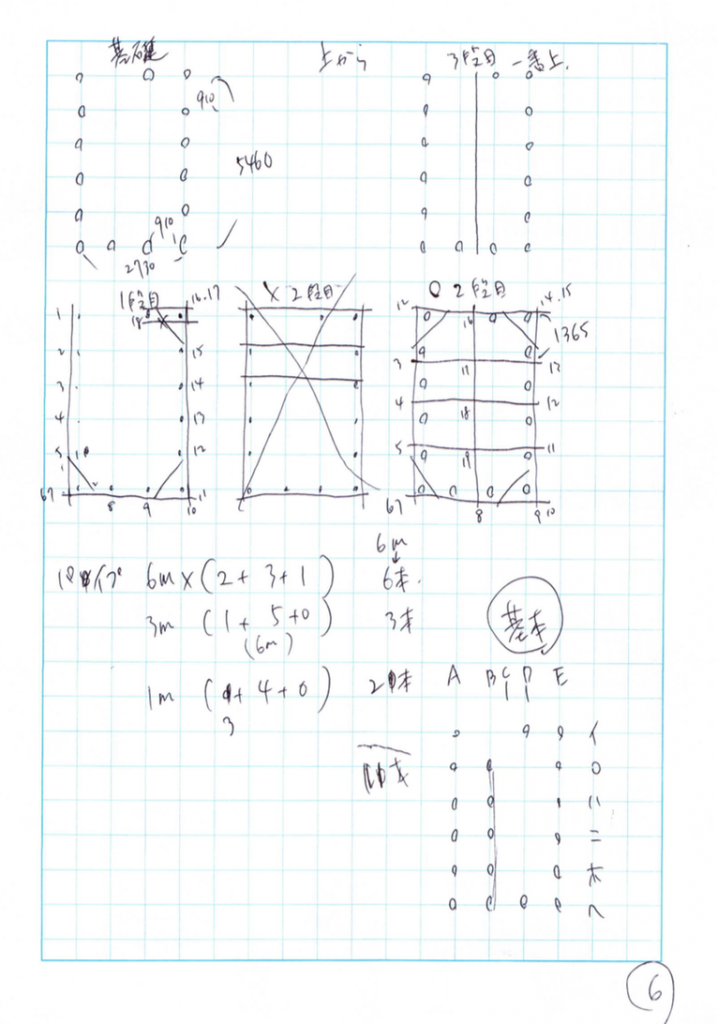 基礎 上から 3段目 一番上.
910
5460
910
2730
1段目 16.17 × 2段目 ○ 2段目
12 14.15
1 18 16 1365
2 15 3 11 13
3 14 4 12
4 13 18
5 12 5 19 11
67 8 9 10 11 67 8 9 10
6m
↓
6m×(2+3+1) 6本.
3m (1+5+0) 3本
(6m)
基本
1m (+4+0) 2本 A B C D E
3
イ
ロ
ハ
ニ
ホ
ヘ
6